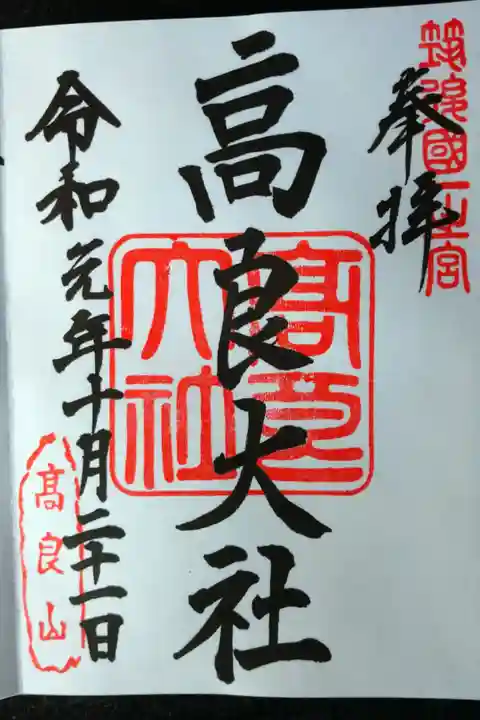 筑後國一之宮
奉拝
高良大社
髙良大社
令和元年十月二十一日
高良山